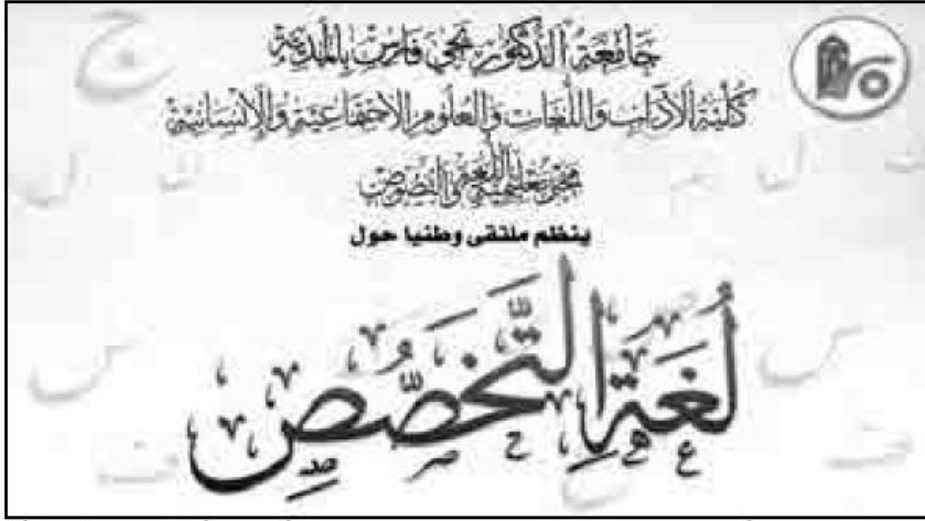 جَامِعَة الدُّكْتُور يَحْيَى فَارِس بِالمَدِيَّة
كُلِّيَّة الآدَاب وَاللُّغَات وَالعُلُوم الاجْتِمَاعِيَّة وَالإِنْسَانِيَّة
مخبر تعليمية اللغة والنصوص
ينظم ملتقى وطنيا حول
لُغَةِ التَّخَصُّصِ